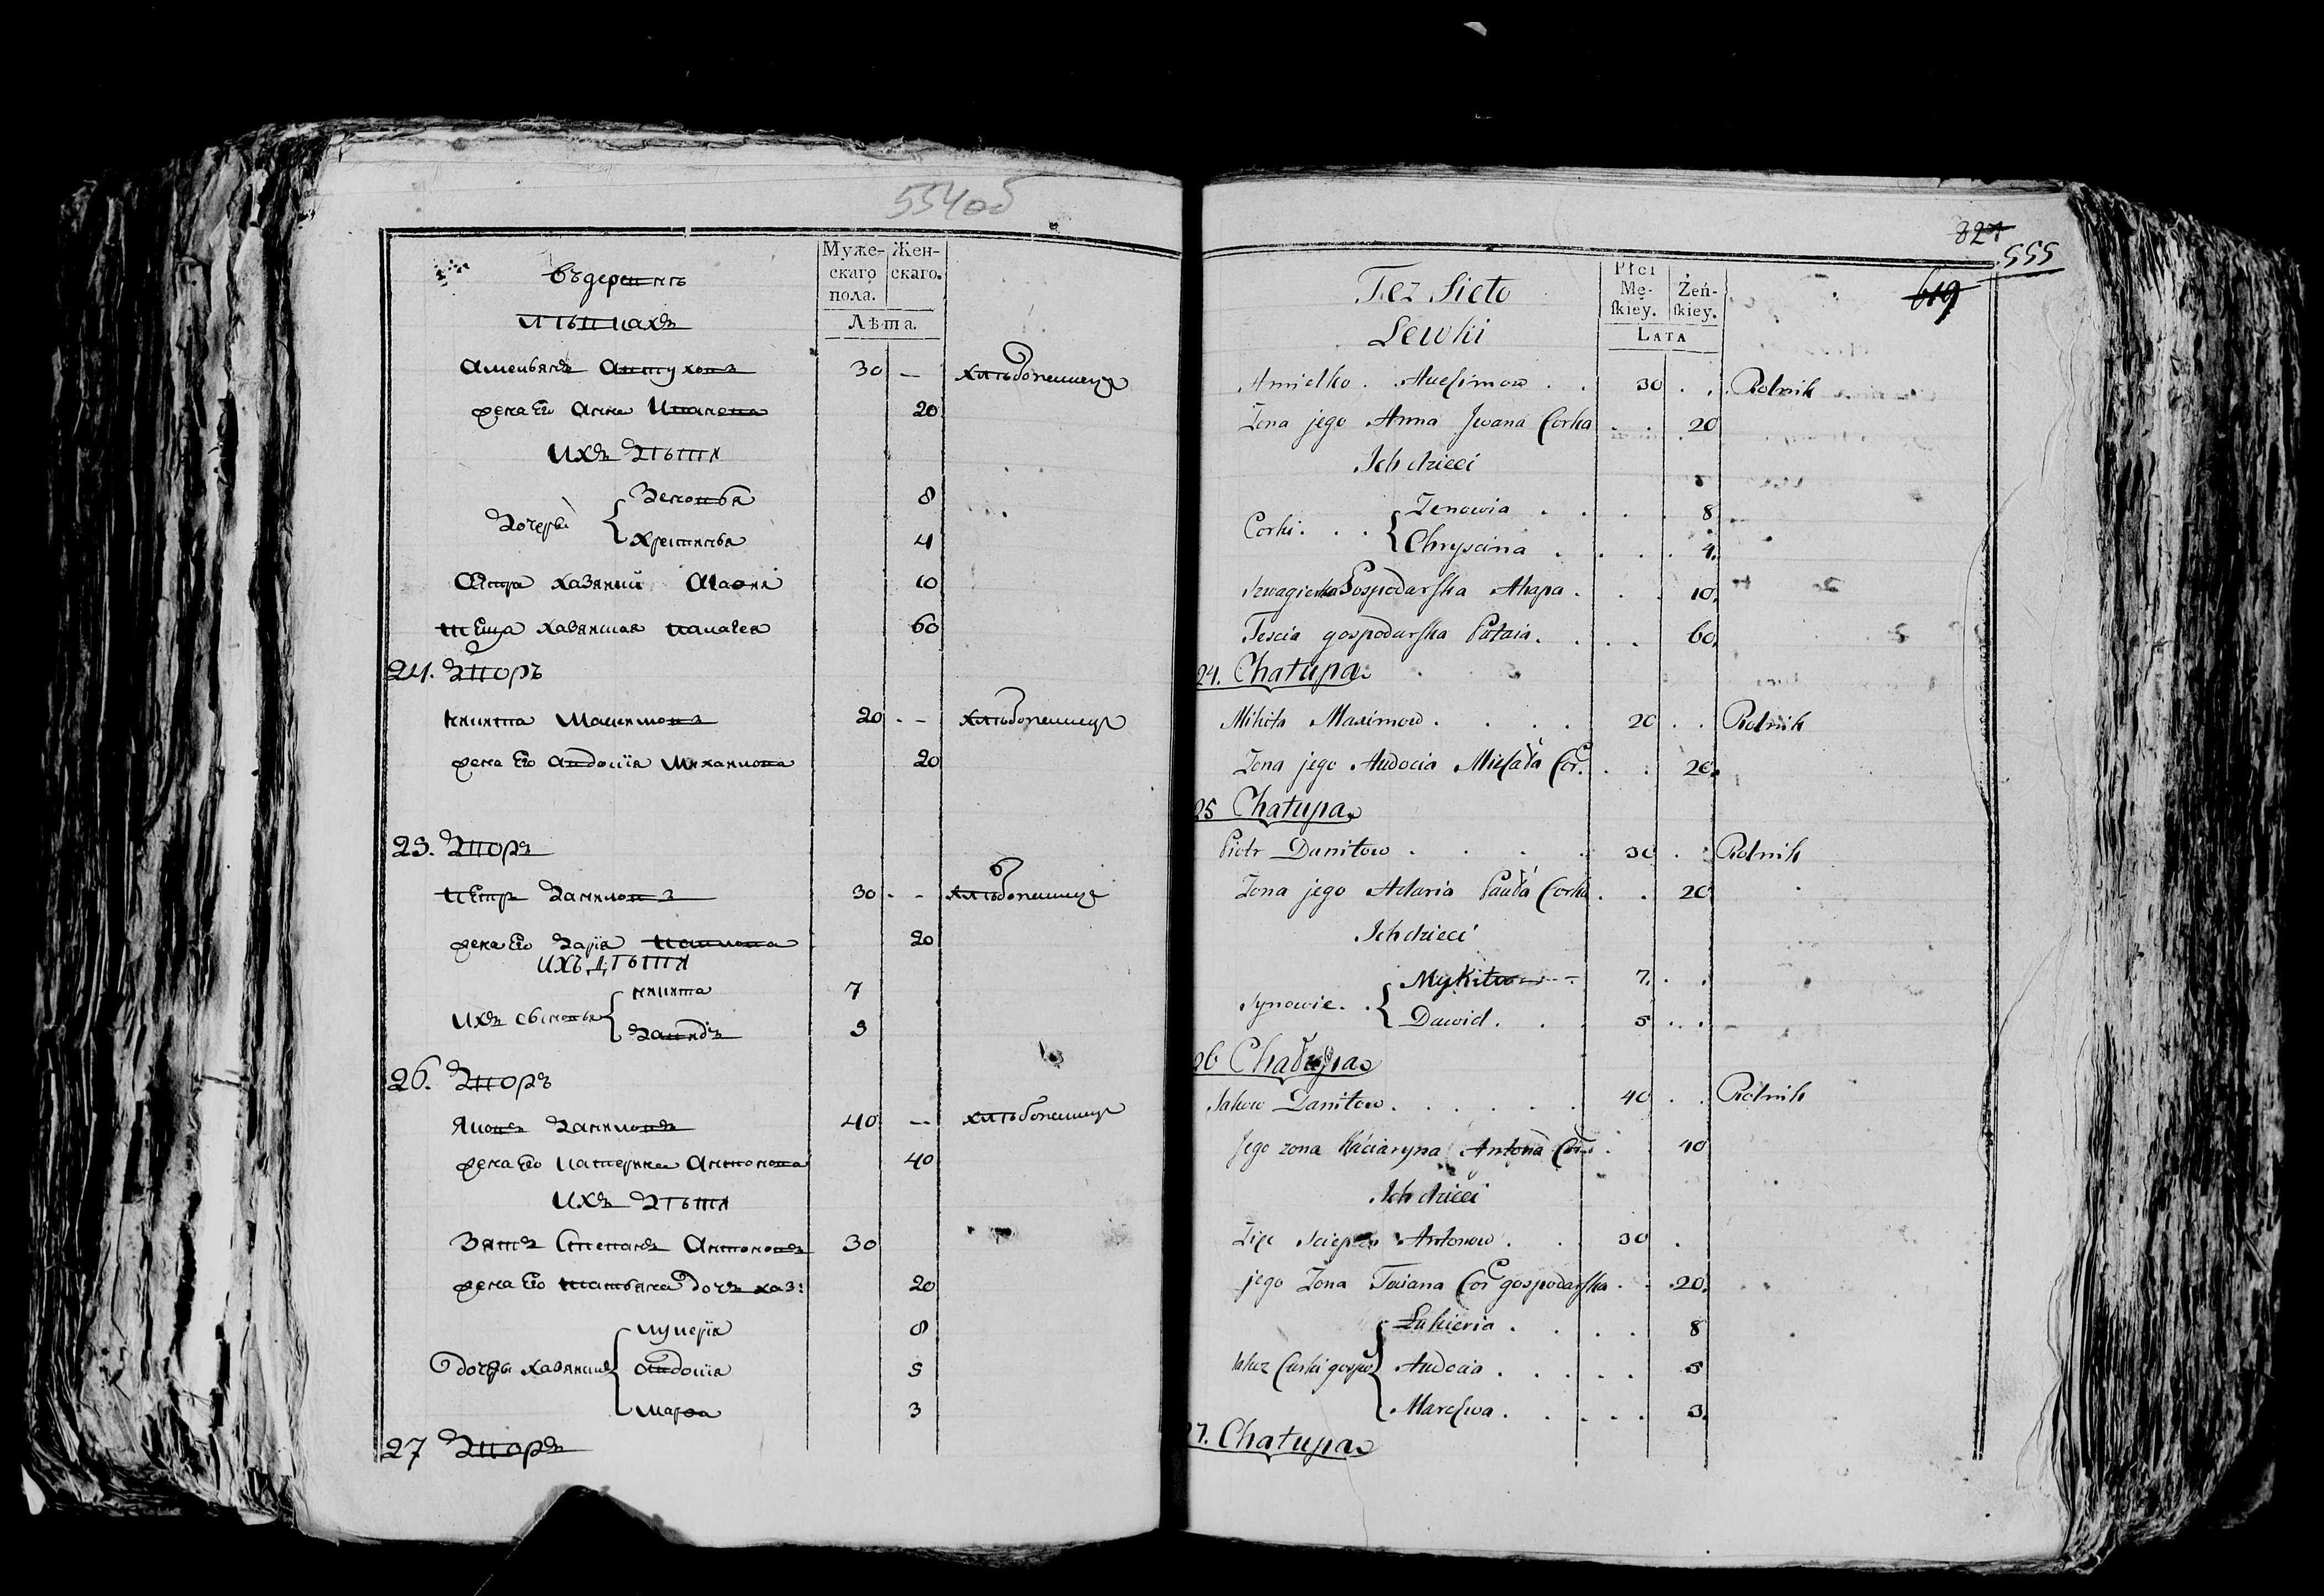 554об
въдеревнѣ
лѣвкахъ
Муже-
скаго
пола.
Жен-
скаго.
Лѣта.
Амельянъ 30 — хлѣбопашецъ
жена Его Анна Иванова 20
ихъ дѣти
дочеры { Зеновья 8
Христинья 4
хазяина Агапа 10
тЕща хазяиская палагея 60
24. Дворъ
никита Максимовъ 20 - - хлѣбопашецъ
жена Его Авдоція Михайлова 20
25. Дворъ
пЕтръ Даниловъ 30 - - хлѣбопашецъ
жена Его Дарія павлова 20
ихъ дѣти
ихъ сыновья { никита 7
Давидъ 5
26. Дворъ
Яковъ Даниловъ 40 -- хлѣбопашецъ
жена Его катерина Антонова 40
ихъ дѣти
Зять Степанъ Антоновъ 30
жена Его татьяна дочъ хаз: 20
дочеры хазяиские { лукерія 8
Авдоція 5
марфа 3
27 Дворъ
821
555
619
Tez Sieło
Lewki
Płci
Mę-
skiey.
Żeń-
skiey.
Lata
Amielko . . . 30 . . Rolnik
Zona jego Anna Jwana Corka . . 20
Ich dzieci
Corki . . . { Zenowia . . . . 8
Chryscina . . . . 4.
szwagierka Gospodarska Ahapa . . . 10.
Tescia gospodarska Połaia . . . . 60.
24. Chałupa
Mikita Maximow . . . . 20 . . Rolnik
Zona jego Audocia Michała Cor. . . 20.
25 Chałupa
Piotr Daniłow . . . . 30 . . Rolnik
Zona jego Adaria Pauła Corka . . 20.
Ich dzieci
Synowie . . { Mykita 7. . .
Dawid . . . 5 . . .
26 Chałupa
Jakow Daniłow . . . . . . 40 . . Rolnik
Jego zona Kaciaryna Antona Cor. . 40
Ich dzieci
Ziec Sciepan Antonow . . 30 .
jego Zona Taciana Cor gospodarska . . 20.
takoz Curki gospod { Łukieria . . . . . 8
Audocia . . . . . 5
Marchwa . . . . . 3.
27. Chałupa